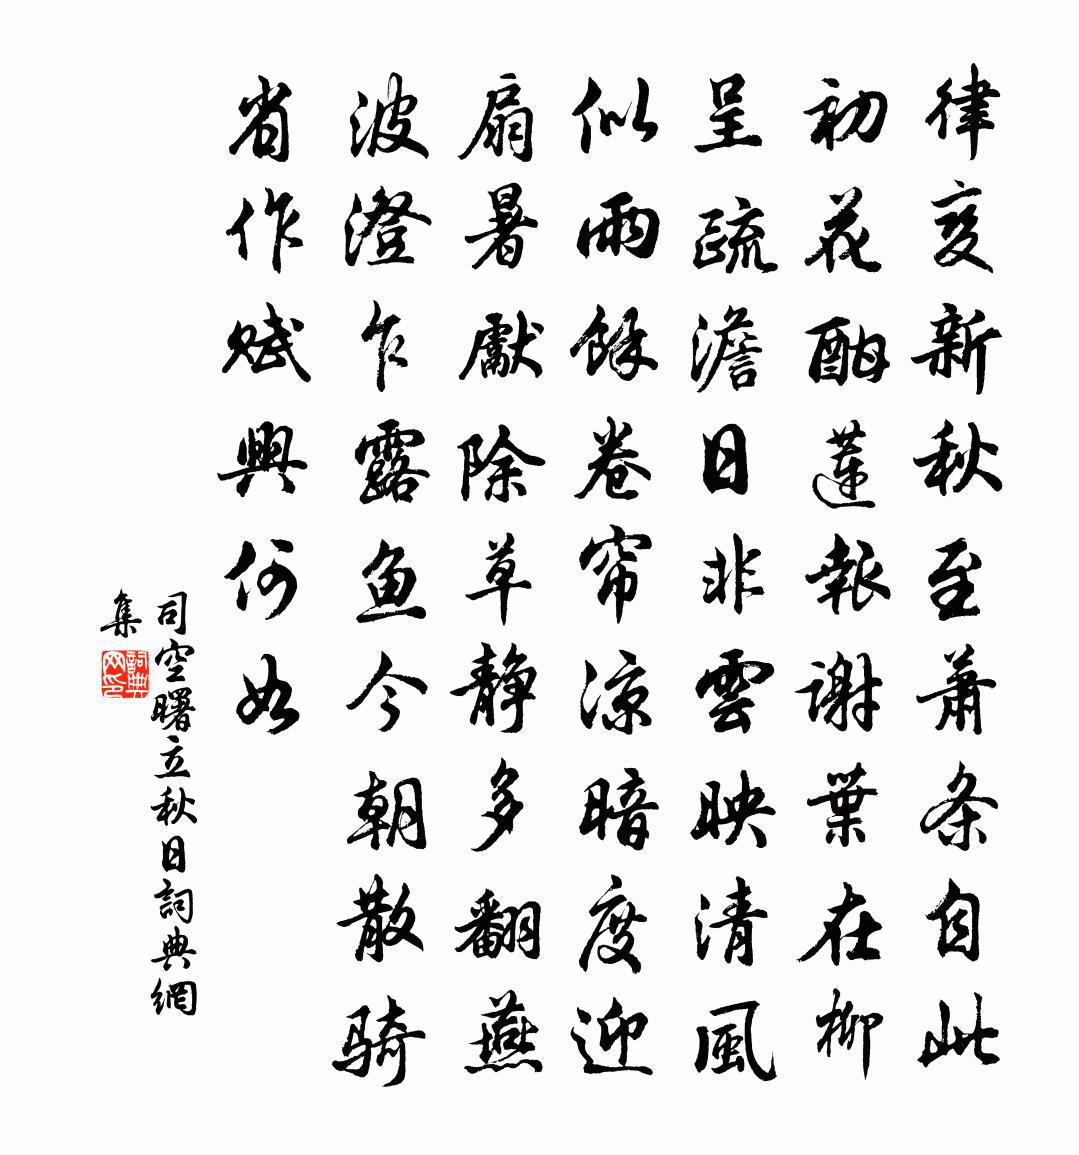 律变新秋至萧条自此
初花酣蓮報谢葉在柳
呈疏澹日非雲映清風
似雨餘卷帘凉暗度迎
扇暑獻除草静多翻燕
波澄乍露鱼今朝散骑
省作赋興何如
司空曙立秋日詞典網
集
詞典
网印